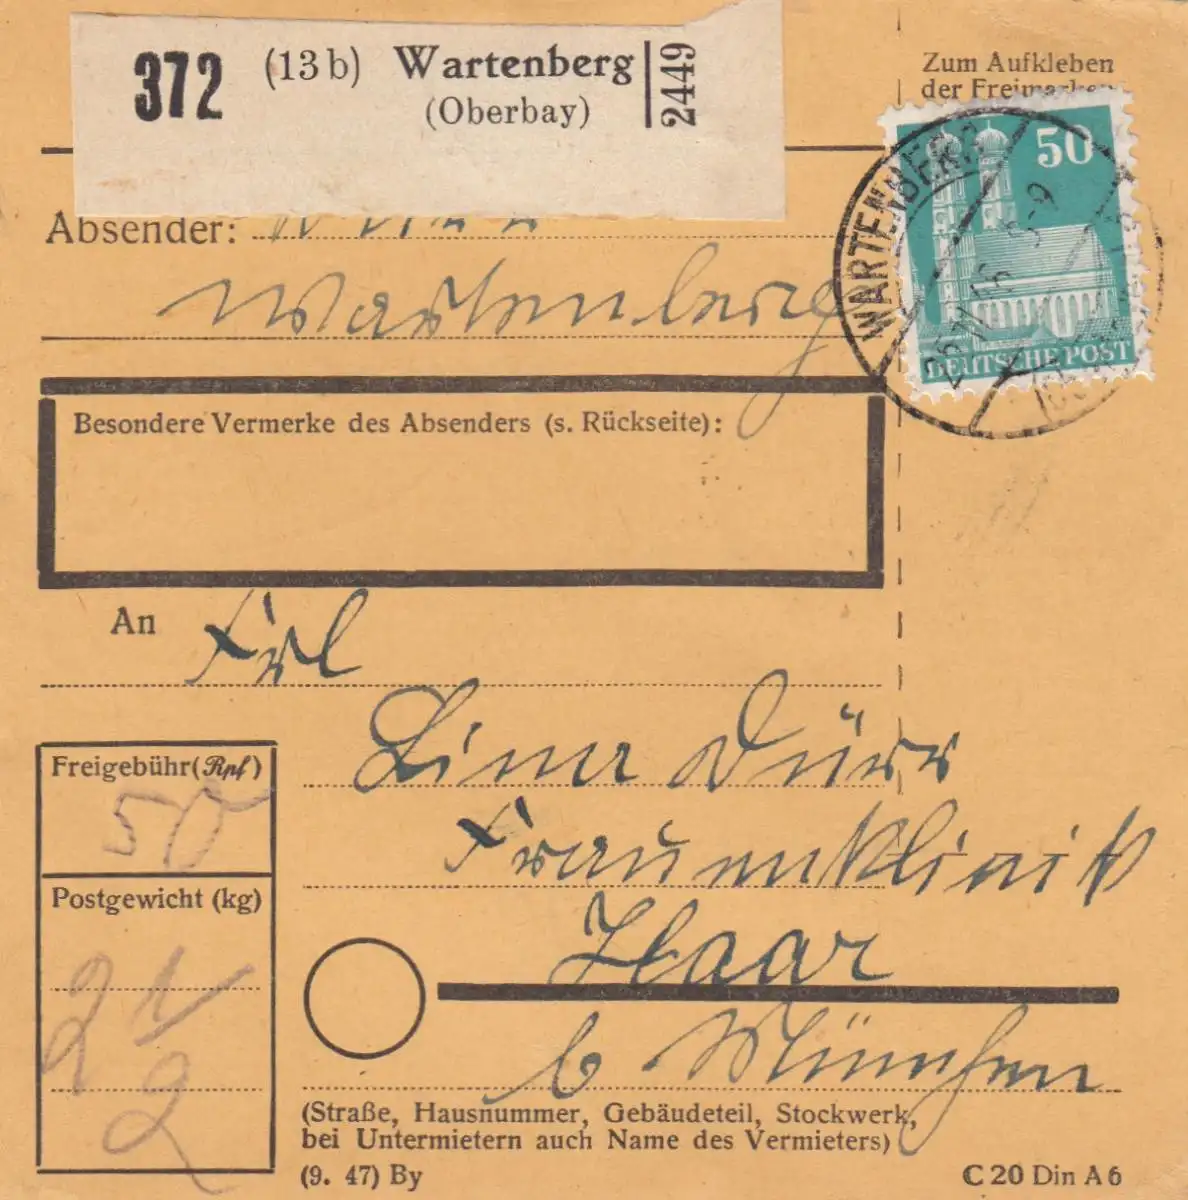 372 (13b) Wartenberg
(Oberbay)
2449
Zum Aufkleben
der Freimarken
50
DEUTSCHE POST
WARTENBERG
Absender:
Wartenberg
Besondere Vermerke des Absenders (s. Rückseite):
An Frl
Lina Dürr
Frauenklinik
Haar
b München
Freigebühr (Rpf)
50
Postgewicht (kg)
2 1/2
(Straße, Hausnummer, Gebäudeteil, Stockwerk,
bei Untermietern auch Name des Vermieters)
(9. 47) By
C 20 Din A 6